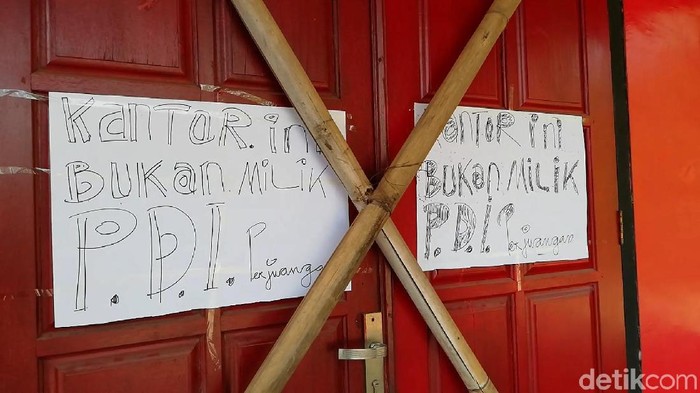 KANTOR. ini
BUKAN. MiLiK
P.D.I. Perjuangan
KANTOR ini
BUKAN MiLiK
P.D.I. Perjuangan
detikcom